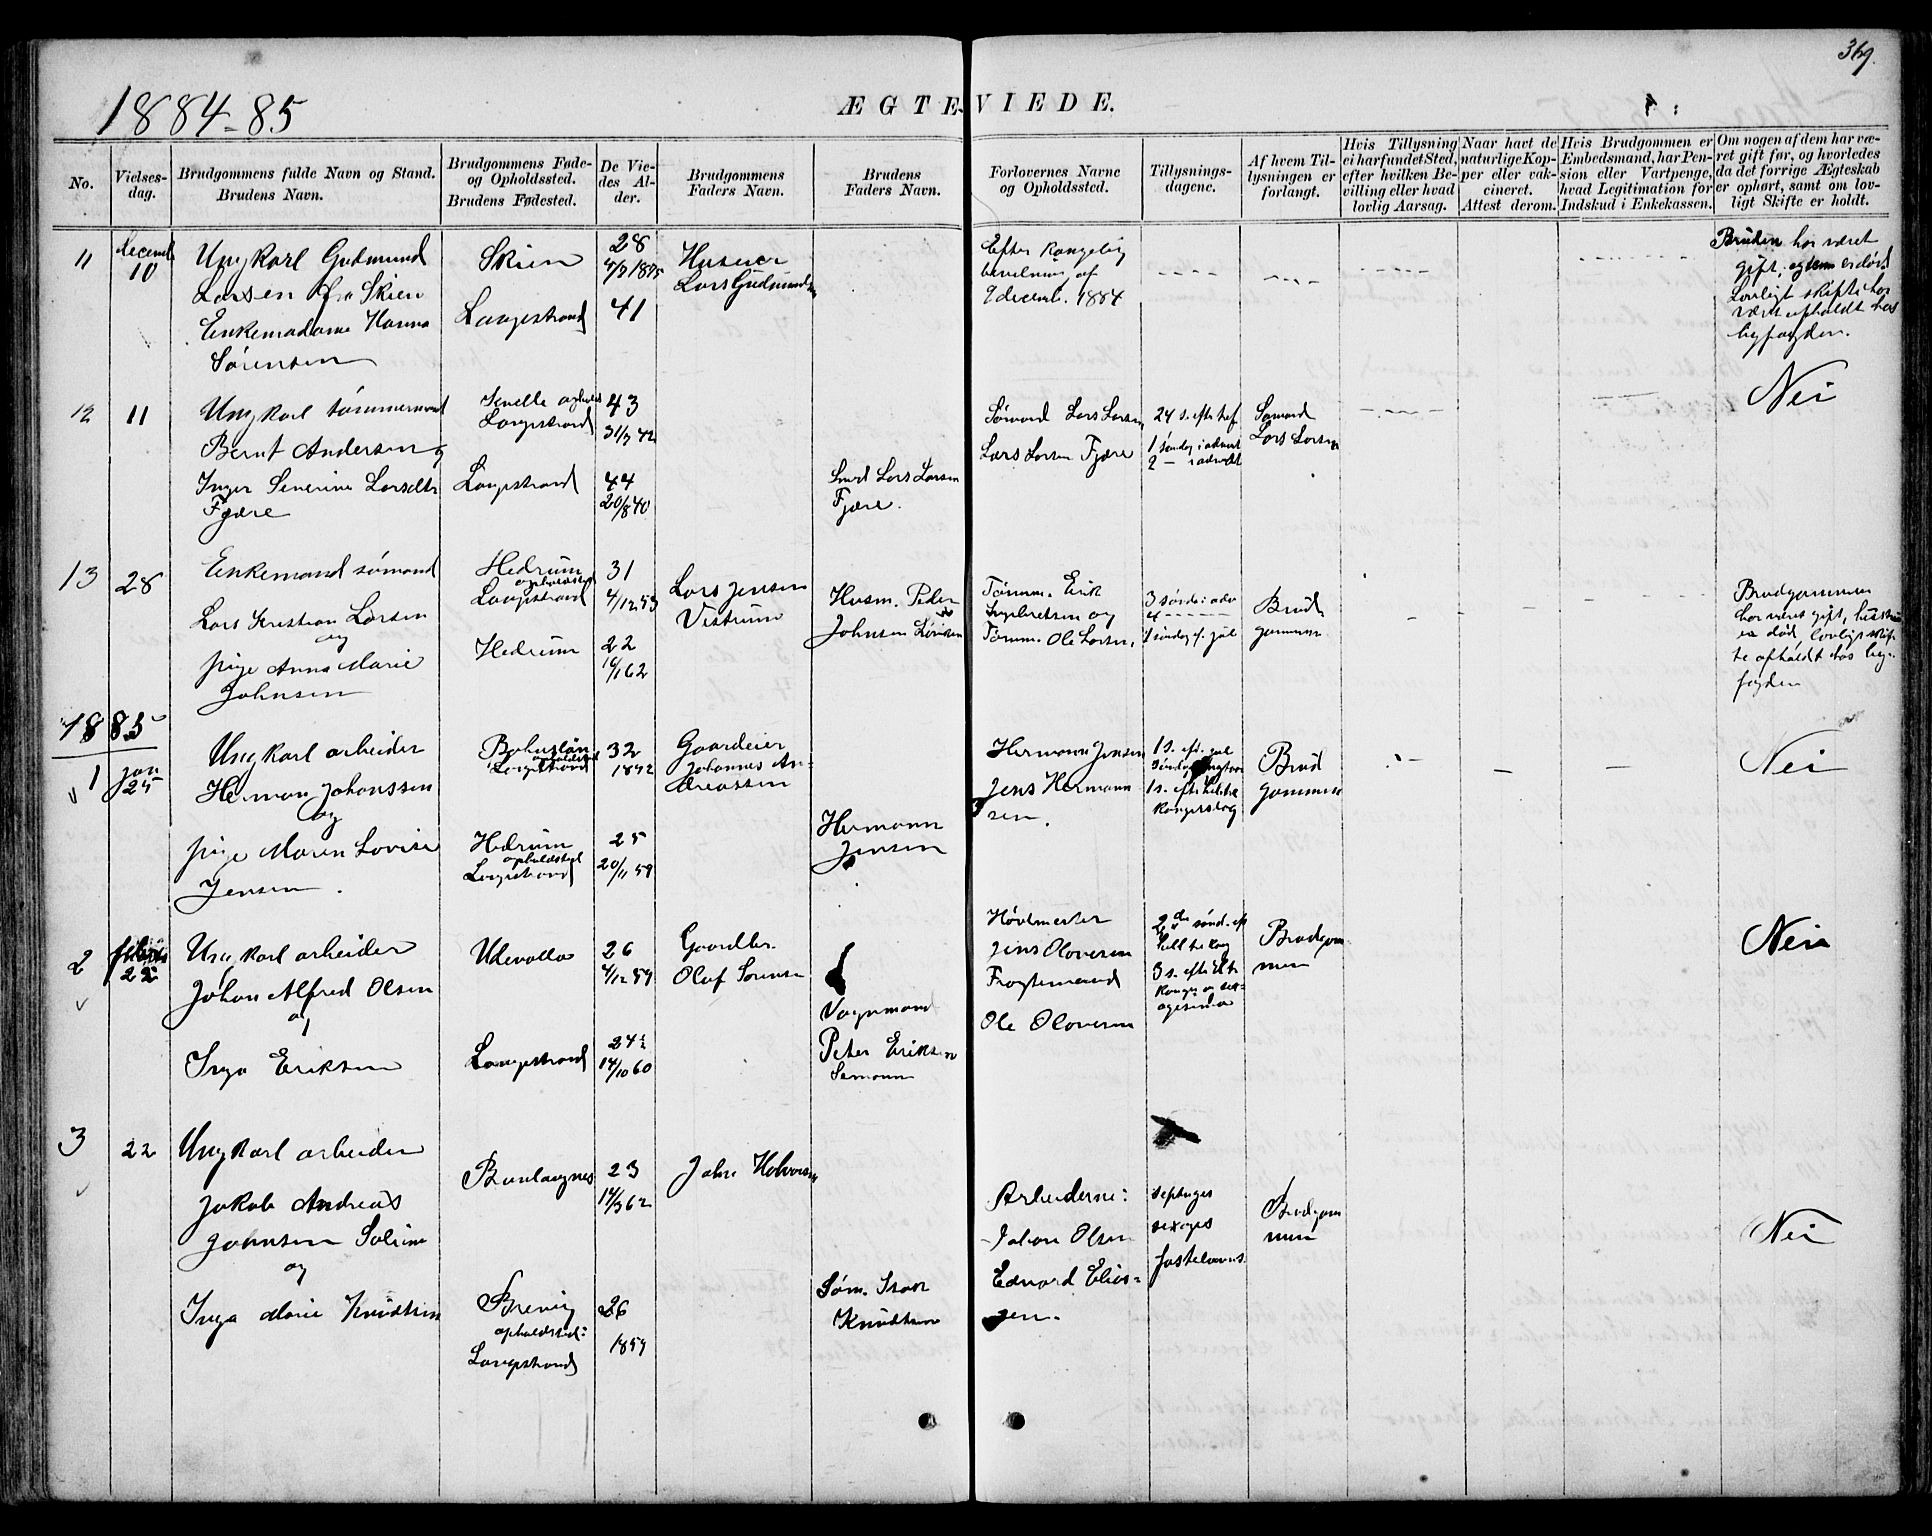 369.
1884-85
ÆGTEVIEDE.
No.
Vielses-
dag.
Brudgommens fulde Navn og Stand.
Brudens Navn.
Brudgommens Føde-
og Opholdssted.
Brudens Fødested.
De Vie-
des Al-
der.
Brudgommens
Faders Navn.
Brudens
Faders Navn.
Forlovernes Navne
og Opholdssted.
Tillysnings-
dagene.
Af hvem Til-
lysningen er
forlangt.
Hvis Tillysning
ei har fundet Sted,
efter hvilken Be-
villing eller hvad
lovlig Aarsag.
Naar havt de
naturlige Kop-
per eller vak-
cineret.
Attest derom.
Hvis Brudgommen er
Embedsmand, har Pen-
sion eller Vartpenge,
hvad Legitimation for
Indskud i Enkekassen.
Om nogen af dem har væ-
ret gift før, og hvorledes
da det forrige Ægteskab
er ophørt, samt om lov-
ligt Skifte er holdt.
11
10
Ungkarl Gudmund
Larsen fra Skien
Enkemadame Hanna
Sørensen
Skien
Langestrand
28
41
Lars Gudmunds
Efter Kongelig
bevilning af
9 decemb. 1884
Bruden har været
gift,
Lovligt skifte har
været afholdt hos
byfogden.
12
11
Ungkarl tømmermand
Bernt Andersen og
Inger Severine Larsdtr
Fjære
Langestrand
Langestrand
43
31/7 42
44
20/8 40
Lars Larsen
Fjære.
Lars Larsen
Lars Larsen Fjære
24 s. efter tref
1 søndag i advent
2 — i advent
Lars Larsen
Nei
13
28
Enkemand sømand
Lars Kristian Larsen
og
pige Anna Marie
Johnsen
Hedrum
opholdssted
Langestrand
Hedrum
31
4/12 53
22
62
Lars Jensen
Vestrum
Husm. Peder
Johnsen
Tømm. Erik
Ingebretsen og
Tømm. Ole Larsen.
3 sønd i adv
4 - - - -
1 søndag f. jul
Brud
gommen
Brudgommen
har været gift, hustru
er død, lovligt skif-
te afholdt hos by-
fogden
1885
1
jan
25
Ungkarl arbeider
Herman Johanssen
og
pige Maren Lovise
Jensen.
Bohuslän
opholdssted
Langestrand
Hedrum
opholdssted
Langestrand
32
25
20/11 59
Gaardeier
Johannes An-
dreassen
Hermann
Jensen
Hermann Jensen
Jens Hermann
sen.
1 s. eft. jul
Brud
gommen
Nei
2
22
Ungkarl arbeider
Johan Alfred Olsen
og
Inga Eriksen
Udevalla
Langestrand
26
24½
14/10 60
Olaf Sørensen
Vognmand
Peter Eriksen
Jens Olavesen
Fragtemand
Ole Olavesen
3 s. eft.
Brudgom
men
Nei
3
22
Ungkarl arbeider
Jakob Andreas
Johnsen
og
Inga Marie Knudtsen
Brunlangnes
Brevig
opholdssted:
Langestrand
23
14/3 62
26
1859
John Halvorsen
Søm. Isak
Knudtsen
Arbeiderne:
Johan Olsen
Edvard Elias-
sen.
septuges
sexages
fastelavns
Brudgom
men
Nei